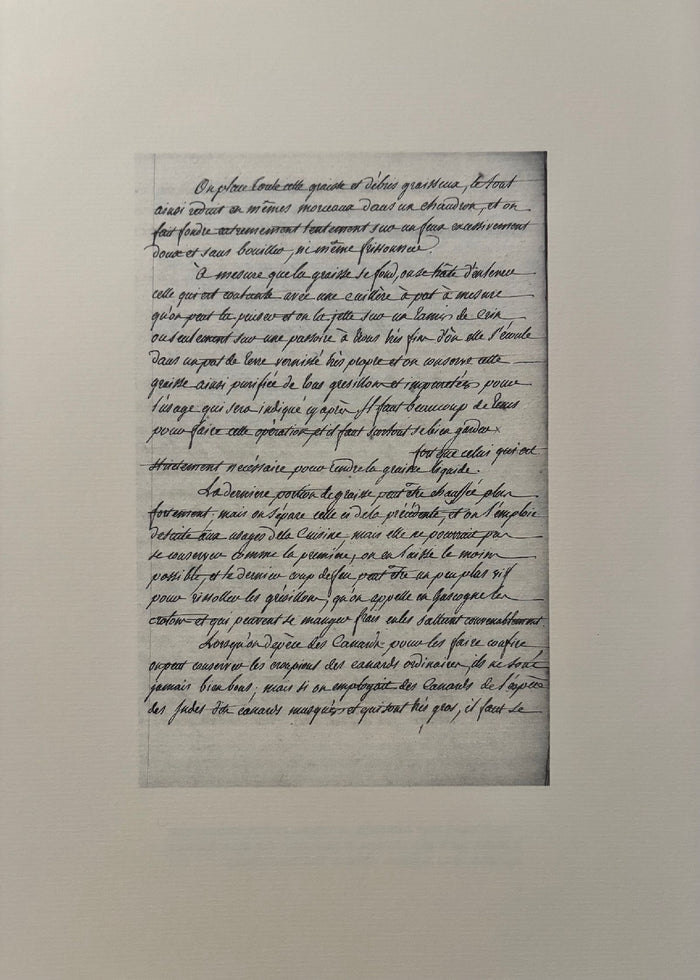 On place toute cette graisse et débris graisseux, le tout
ainsi réduit en mêmes morceaux dans un chaudron, et on
fait fondre extremement lentement sur un feu excessivement
doux et sans bouillir, ni même frissonner.
À mesure que la graisse se fond, on se hâte d'enlever
celle qui est coulante avec une cuillère à pot à mesure
qu'on peut la puiser et on la jette sur un tamis de crin
ou seulement sur une passoire à trous très fins d'où elle s'écoule
dans un pot de terre vernissé très propre et on conserve cette
graisse ainsi purifiée de tous gresillons et impuretés pour
l'usage qui sera indiqué cy après. Il faut beaucoup de tems
pour faire cette opération et il faut surtout se bien garder
fort que celui qui est
strictement nécéssaire pour rendre la graisse liquide.
La derniere portion de graisse peut être chauffée plus
fortement; mais on sépare celle ci de la précédente, et on l'emploie
de suite aux usages de la Cuisine, mais elle ne pourrait pas
se conserver comme la première, on en laisse le moins
possible, et le dernier coup de feu peut être un peu plus vif
pour rissoller les grésillons, qu'on appelle en Gascogne les
et qui peuvent se manger frais en les sallant convenablement
Lorsqu'on dépèce des Canards pour les faire confire
on peut conserver les croupions des canards ordinaires, ils ne sont
jamais bien bons; mais si on employait des Canards de l'espèce
des Indes dits canards musqués et qui sont très gros, il faut se